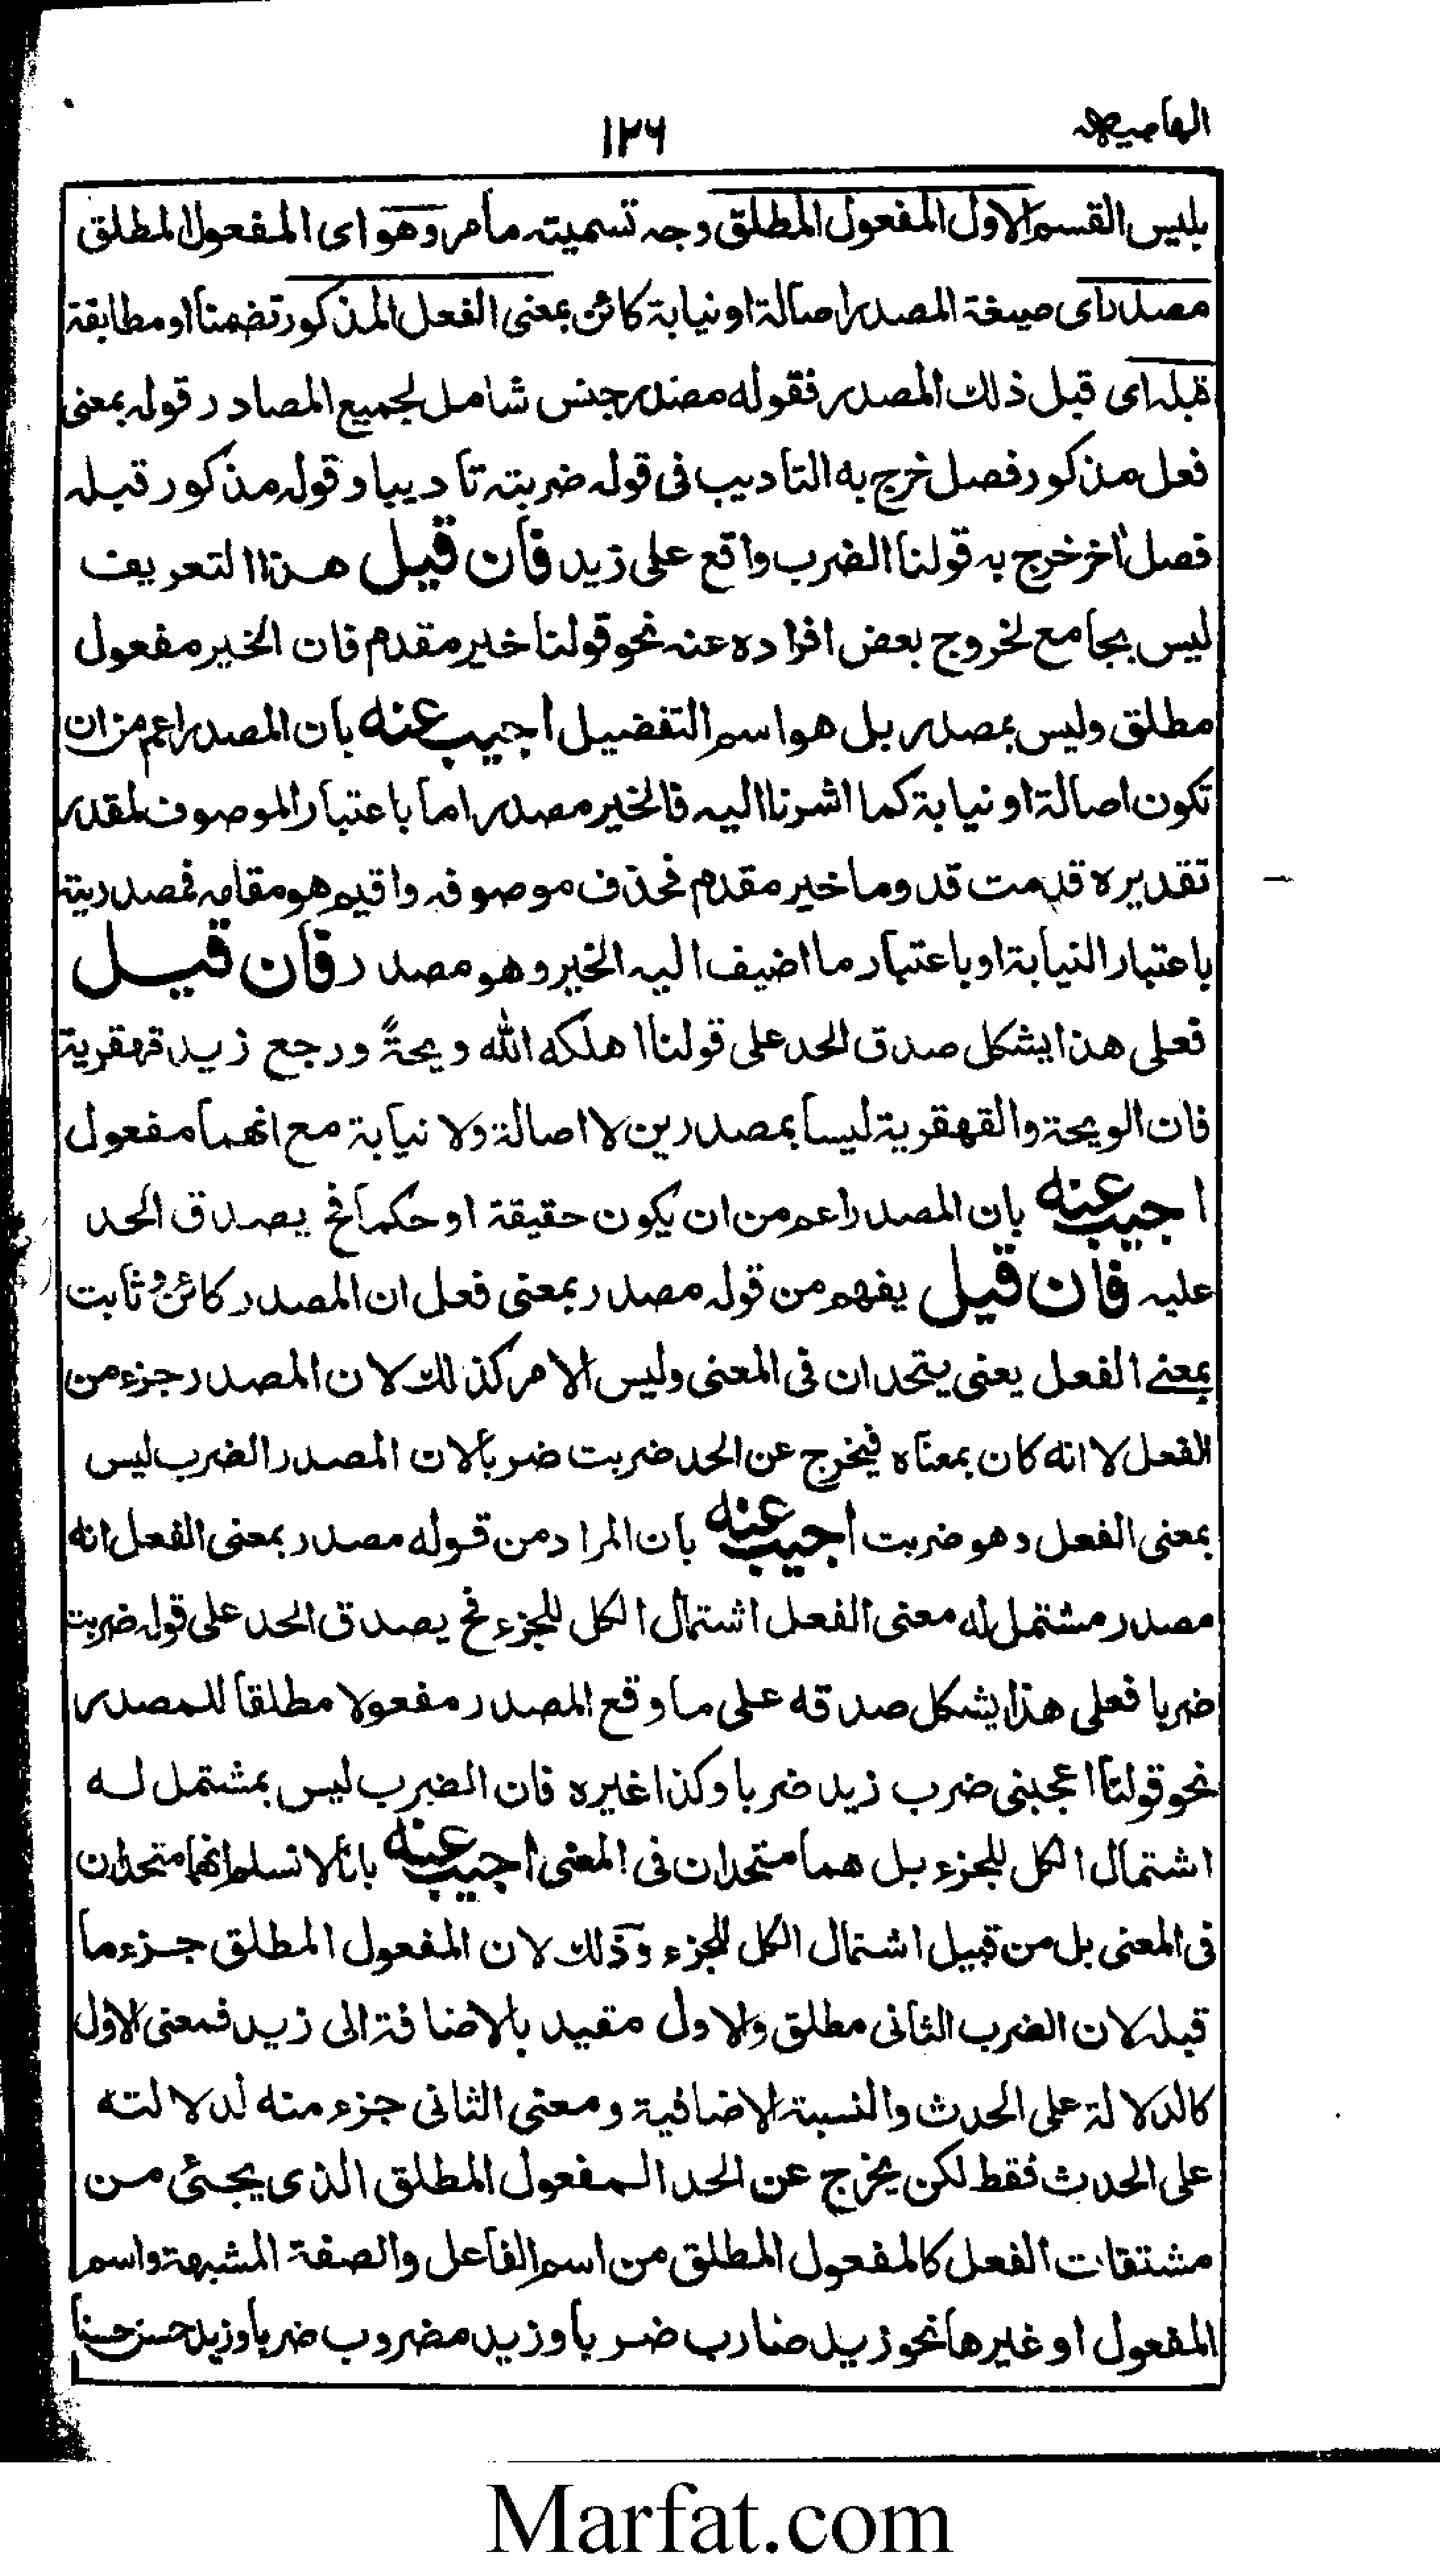 الهامیه
۱۲۶
بلیس القسم الاول المفعول المطلق وجه تسمیته ما مر وهو ای المفعول المطلق
مصدر ای صیغة المصدر اصالة او نیابة کائن بمعنی الفعل المذکور تضمنا او مطابقة
قبله ای قبل ذلك المصدر فقوله مصدر جنس شامل لجمیع المصادر قوله بمعنی
فعل مذکور فصل خرج به التادیب فی قوله ضربته تادیبا وقوله مذکور قبله
فصل اخر خرج به قولنا الضرب واقع علی زید فان قیل هذا التعریف
لیس بجامع لخروج بعض افراده عنه نحو قولنا خیر مقدم فان الخیر مفعول
مطلق ولیس بمصدر بل هو اسم التفضیل اجیب عنه بان المصدر اعم من ان
تکون اصالة او نیابة کما اشرنا الیه فالخیر مصدر اما باعتبار الموصوف لمقدر
تقدیره قدمت قدوما خیر مقدم فحذف موصوفه واقیم هو مقامه فمصدریته
باعتبار النیابة او باعتبار ما اضیف الیه الخیر وهو مصدر فان قیل
فعلی هذا یشکل صدق الحد علی قولنا اهلکه الله ویحة ورجع زید قهقریة
فان الویحة والقهقریة لیسا بمصدرین لا اصالة ولا نیابة مع انهما مفعول
اجیب عنه بان المصدر اعم من ان یکون حقیقة او حکما فح یصدق الحد
علیه فان قیل یفهم من قوله مصدر بمعنی فعل ان المصدر کائن و ثابت
بمعنے الفعل یعنی یتحدان فی المعنی ولیس الامر کذلك لان المصدر جزء من
الفعل لا انه کان بمعناه فیخرج عن الحد ضربت ضربا لان المصدر الضرب لیس
بمعنی الفعل وهو ضربت اجیب عنه بان المراد من قوله مصدر بمعنی الفعل انه
مصدر مشتمل له معنی الفعل اشتمال الکل للجزء فح یصدق الحد علی قوله ضربت
ضربا فعلی هذا یشکل صدقه علی ما وقع المصدر مفعولا مطلقا للمصدر
نحو قولنا اعجبنی ضرب زید ضربا وکذا غیره فان الضرب لیس بمشتمل له
اشتمال الکل للجزء بل هما متحدان فی المعنی اجیب عنه بانا لا نسلم انهما متحدان
فی المعنی بل من قبیل اشتمال الکل للجزء وذلك لان المفعول المطلق جزء ما
قبله لان الضرب الثانی مطلق والاول مقید بالاضافة الی زید فمعنی الاول
کالدلالة علی الحدث والنسبة الاضافیة ومعنی الثانی جزء منه لدلالته
علی الحدث فقط لکن یخرج عن الحد المفعول المطلق الذی یجئی من
مشتقات الفعل کالمفعول المطلق من اسم الفاعل والصفة المشبهة واسم
المفعول او غیرها نحو زید ضارب ضربا وزید مضروب ضربا وزید حسن حسنا
Marfat.com